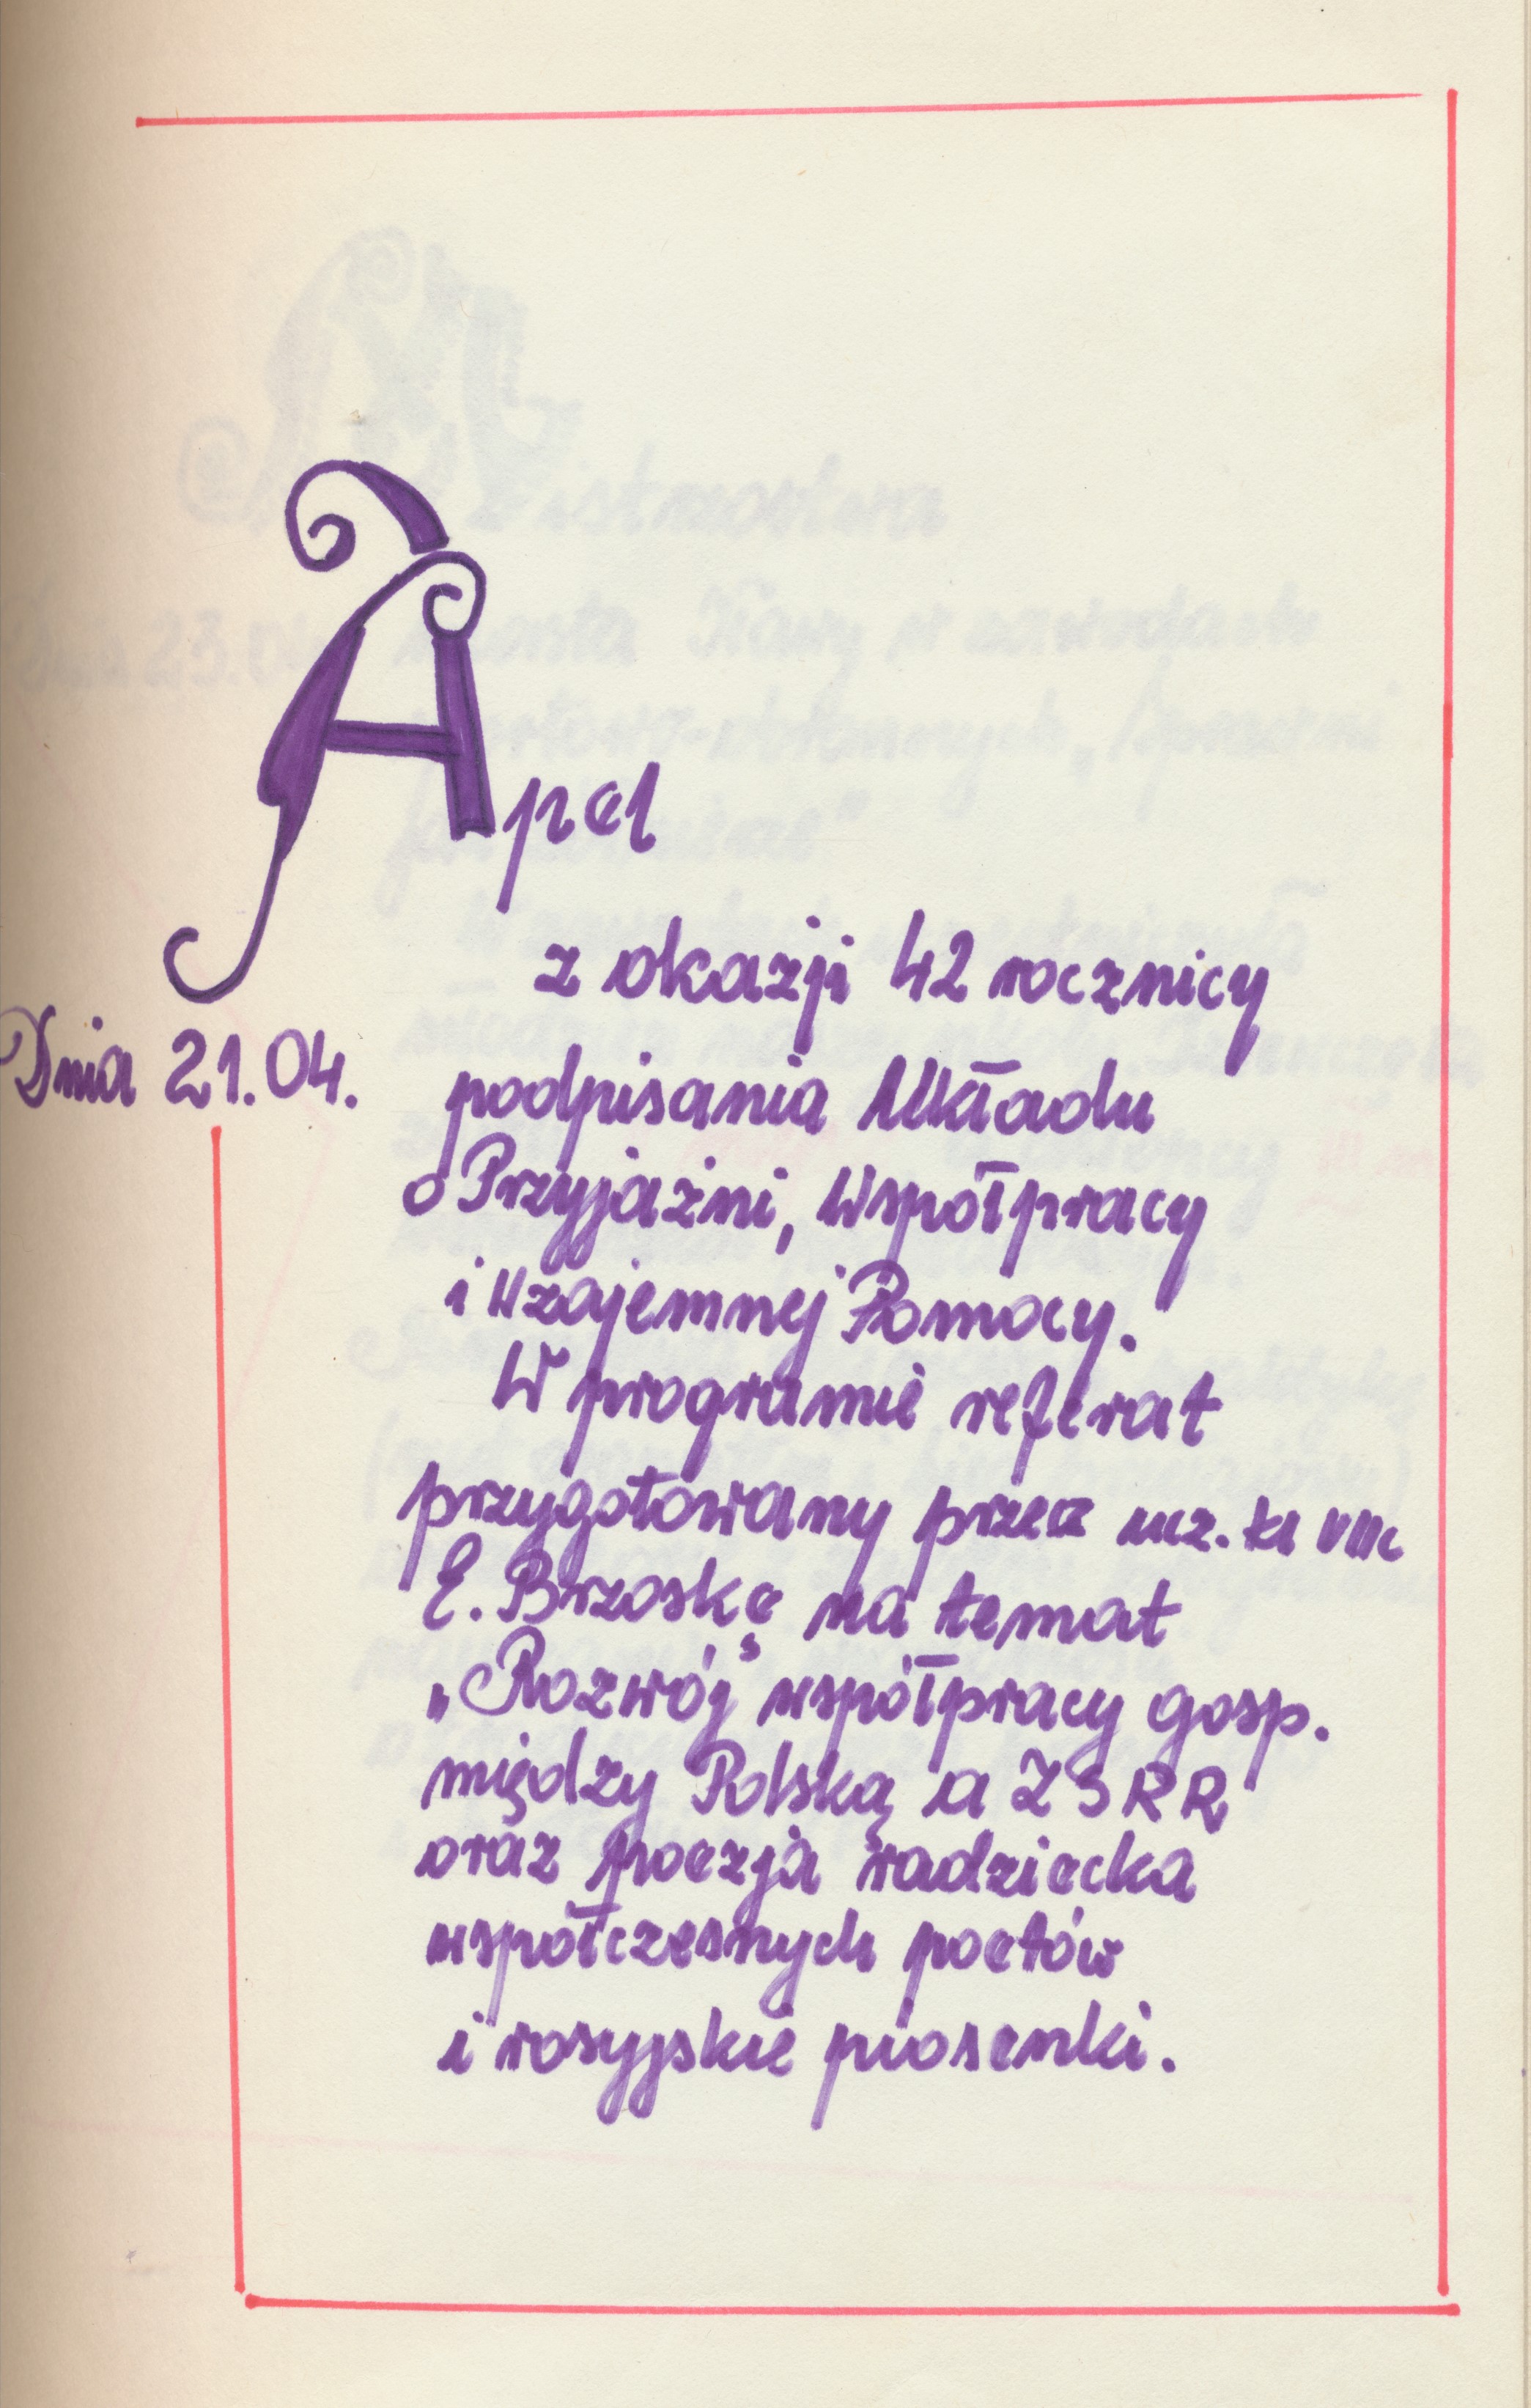 Apel
z okazji 42 rocznicy
Dnia 21.04.
podpisania Układu
o Przyjaźni, Współpracy
i Wzajemnej Pomocy.
W programie referat
przygotowany przez ucz. kl VIIIc
E. Brzoskę na temat
„Rozwój" współpracy gosp.
między Polską a ZSRR
oraz poezja radziecka
współczesnych poetów
i rosyjskie piosenki.